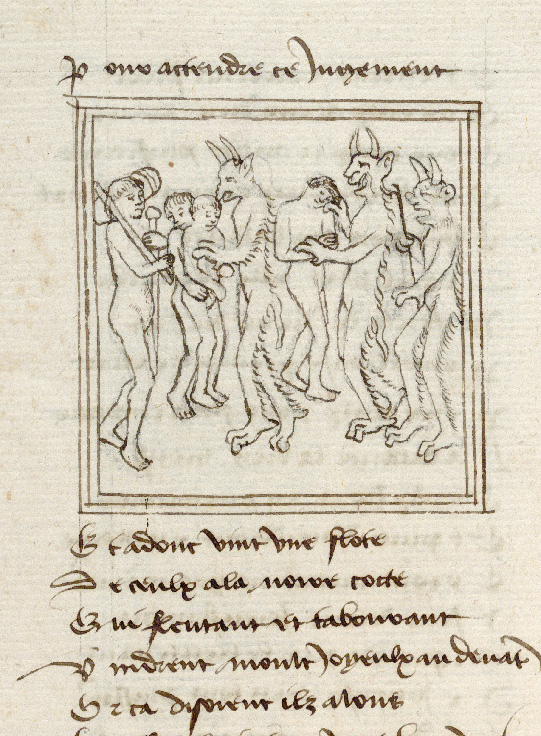 Pour attendre ce Jugement
Et adonc vint vne flote
De ceulx a la noire cotte
Qui fleutant et tabourant
Vindrent moult Joyeulx au deuat
Or ca disoient ilz alons